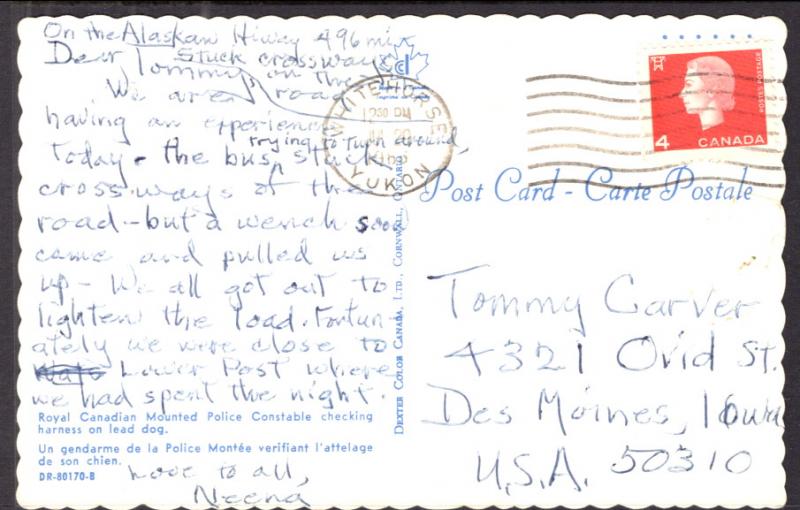 On the Alaskan Hiway 496 mi.
Stuck crossways
on the
road
Dear Tommy
We are
having an experience
trying to turn around,
today - the bus stuck
crossways of the
road - but a wench soon
came and pulled us
up - We all got out to
lighten the load. Fortun-
ately we were close to
Lower Post where
we had spent the night.
Royal Canadian Mounted Police Constable checking
harness on lead dog.
Un gendarme de la Police Montée verifiant l'attelage
de son chien.
DR-80170-B
Love to all,
Neena
DEXTER COLOR CANADA, LTD., CORNWALL, ONTARIO
WHITEHORSE
YUKON
POSTES POSTAGE
4 CANADA
Post Card - Carte Postale
Tommy Carver
4321 Ovid St.
Des Moines, Iowa
U.S.A. 50310